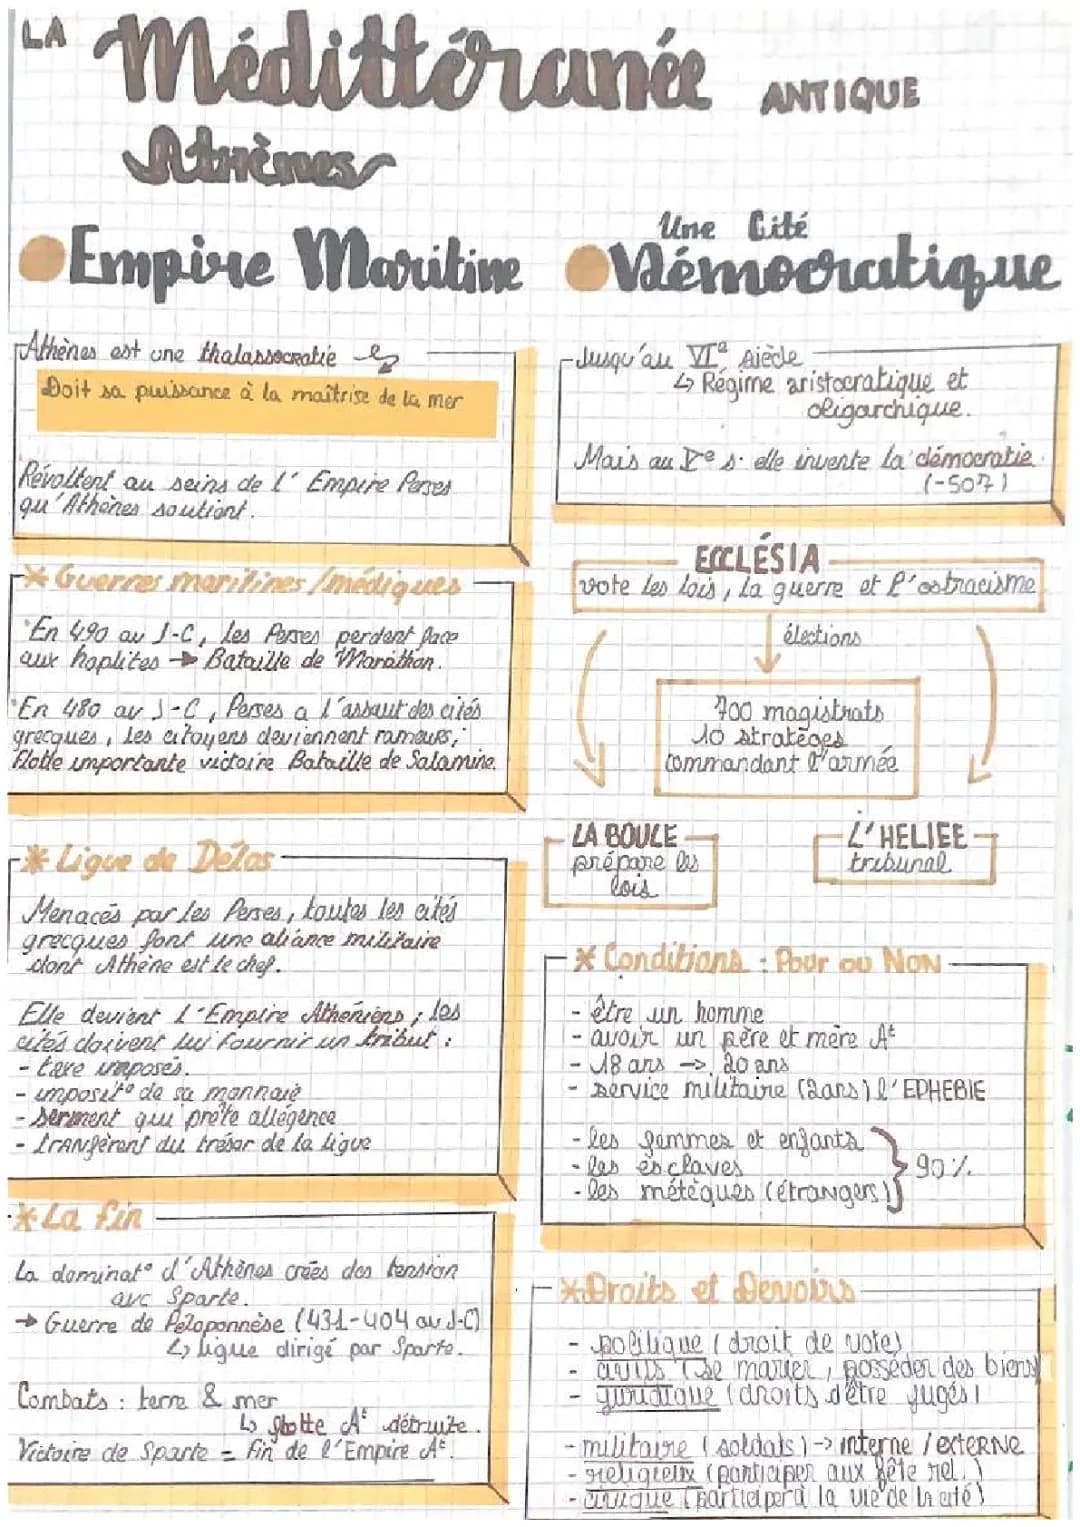 LA Médittéranée ANTIQUE
Athènes
Empire Maritine
Athènes est une thalassocratie
Doit sa puissance à la maîtrise de la mer
Révoltent au seins de l' Empire Perses
qu'Athènes soutient.
* Guerres maritines / médiques
En 490 av J-C, les Perses perdent face
aux hoplites → Bataille de Marathon.
En 480 av J-C, Perses a l'assaut des cités
grecques, les citoyens deviennent rameurs,
flotte importante victoire Bataille de Salamine.
* Ligue de Délos
Menacés par les Perses, toutes les cités
grecques font une aliance militaire
dont Athène est le chef.
Elle devient l'Empire Athéniens ; les
cités doivent lui fournir un tribut :
- taxe imposés.
- imposit° de sa monnaie
- serment qui prête allégence
- trANsfèrent du trésor de la ligue
* La fin
La dominat° d'Athènes crées des tension
avc Sparte.
→ Guerre de Péloponnèse (431-404 av J-C)
↳ ligue dirigé par Sparte.
Combats : terre & mer
↳ flotte At détruite.
Victoire de Sparte = Fin de l'Empire At.
Une Cité
Démocratique
Jusqu'au VIe siècle
↳ Régime aristocratique et
oligarchique.
Mais au Ve s. elle invente la démocratie
(-507)
ECCLÉSIA
vote les lois, la guerre et l'ostracisme
élections
700 magistrats
10 stratèges
commandant l'armée
LA BOULE
prépare les
lois
L'HELIEE
tribunal
* Conditions : Pour ou NON
- être un homme
- avoir un père et mère At
- 18 ans → 20 ans
- service militaire (2ans) l'EPHEBIE
- les femmes et enfants
- les esclaves
- les métèques (étrangers)
90%
* Droits et Devoirs
- politique (droit de votes)
- civils (se marier, posséder des biens)
- juridique (droits d'être jugés)
- militaire (soldats) → interne / EXTERNE
- religieux (participer aux fête rel.)
- civique (participer à la vie de la cité)